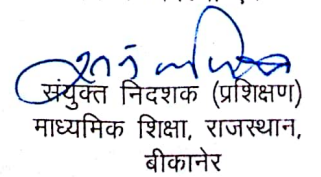 संयुक्त निदशक (प्रशिक्षण)
माध्यमिक शिक्षा, राजस्थान,
बीकानेर